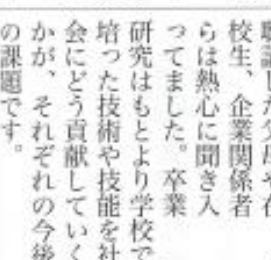 聴講した父母や在
校生、企業関係者
らは熱心に聞き入
ってました。卒業
研究はもとより学校で
培った技術や技能を社
会にどう貢献していく
かが、それぞれの今後
の課題です。